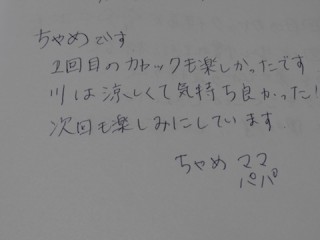 ちゃめです
2回目のカヤックも楽しかったです
川は涼しくて気持ち良かった!
次回も楽しみにしています.
ちゃめ ママ
パパ